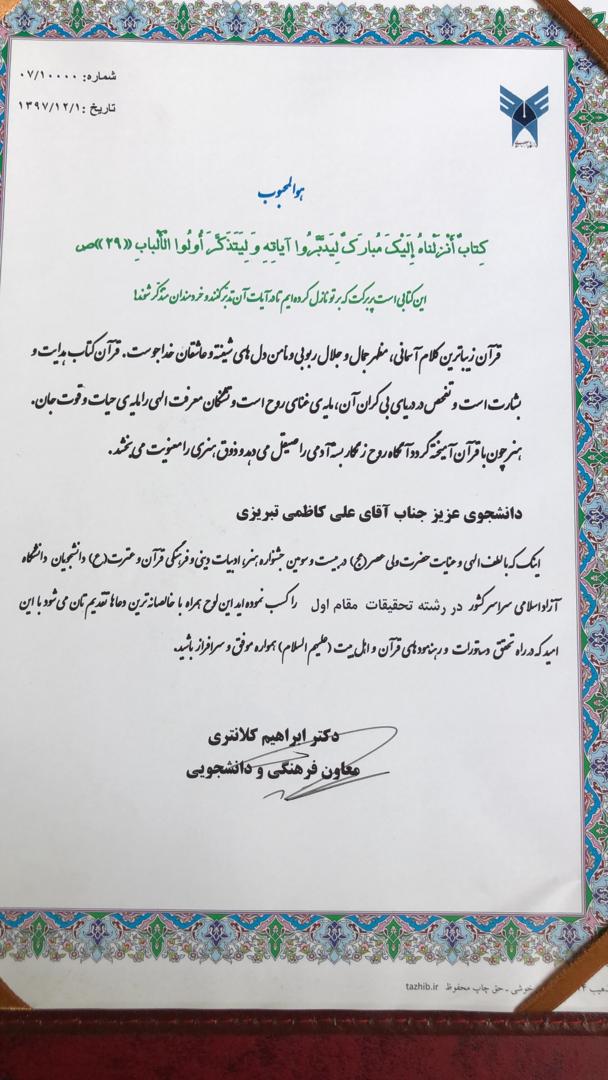 شماره: ۰۷/۱۰۰۰۰
تاریخ :۱۳۹۷/۱۲/۱
هوالمحبوب
كِتابٌ أَنْزَلْناهُ إِلَيْكَ مُبارَكٌ لِيَدَّبَّرُوا آياتِهِ وَ لِيَتَذَكَّرَ أُولُوا الْأَلْبابِ «۲۹» ص
این کتابی است پربرکت که بر تو نازل کرده ایم تا در آیات آن تدبّر کنند و خردمندان متذکّر شوند!
قرآن زیباترین کلام آسمانی، مظهر جمال و جلال ربوبی و مامن دل های شیفته و عاشقان خداجوست. قرآن کتاب هدایت و
بشارت است و تفحص در دریای بی کران آن، مایه ی غنای روح است و تشنگان معرفت الهی را مایه ی حیات و قوت جان.
هنر چون با قرآن آمیخته گردد آنگاه روح زنگار بسته آدمی را صیقل می دهد و ذوق هنری را معنویت می بخشد.
دانشجوی عزیز جناب آقای علی کاظمی تبریزی
اینک که با لطف الهی و عنایت حضرت ولی عصر(عج) در بیست و سومین جشنواره هنر، ادبیات دینی و فرهنگی قرآن و عترت(ع) دانشجویان دانشگاه
آزاد اسلامی سراسر کشور در رشته تحقیقات مقام اول را کسب نموده اید این لوح همراه با خالصانه ترین دعاها تقدیم تان می شود با این
امید که در راه تحقق دستورات و رهنمودهای قرآن و اهل بیت (علیهم السلام) همواره موفق و سرافراز باشید.
دکتر ابراهیم کلانتری
معاون فرهنگی و دانشجویی
خوشی - حق چاپ محفوظ tazhib.ir